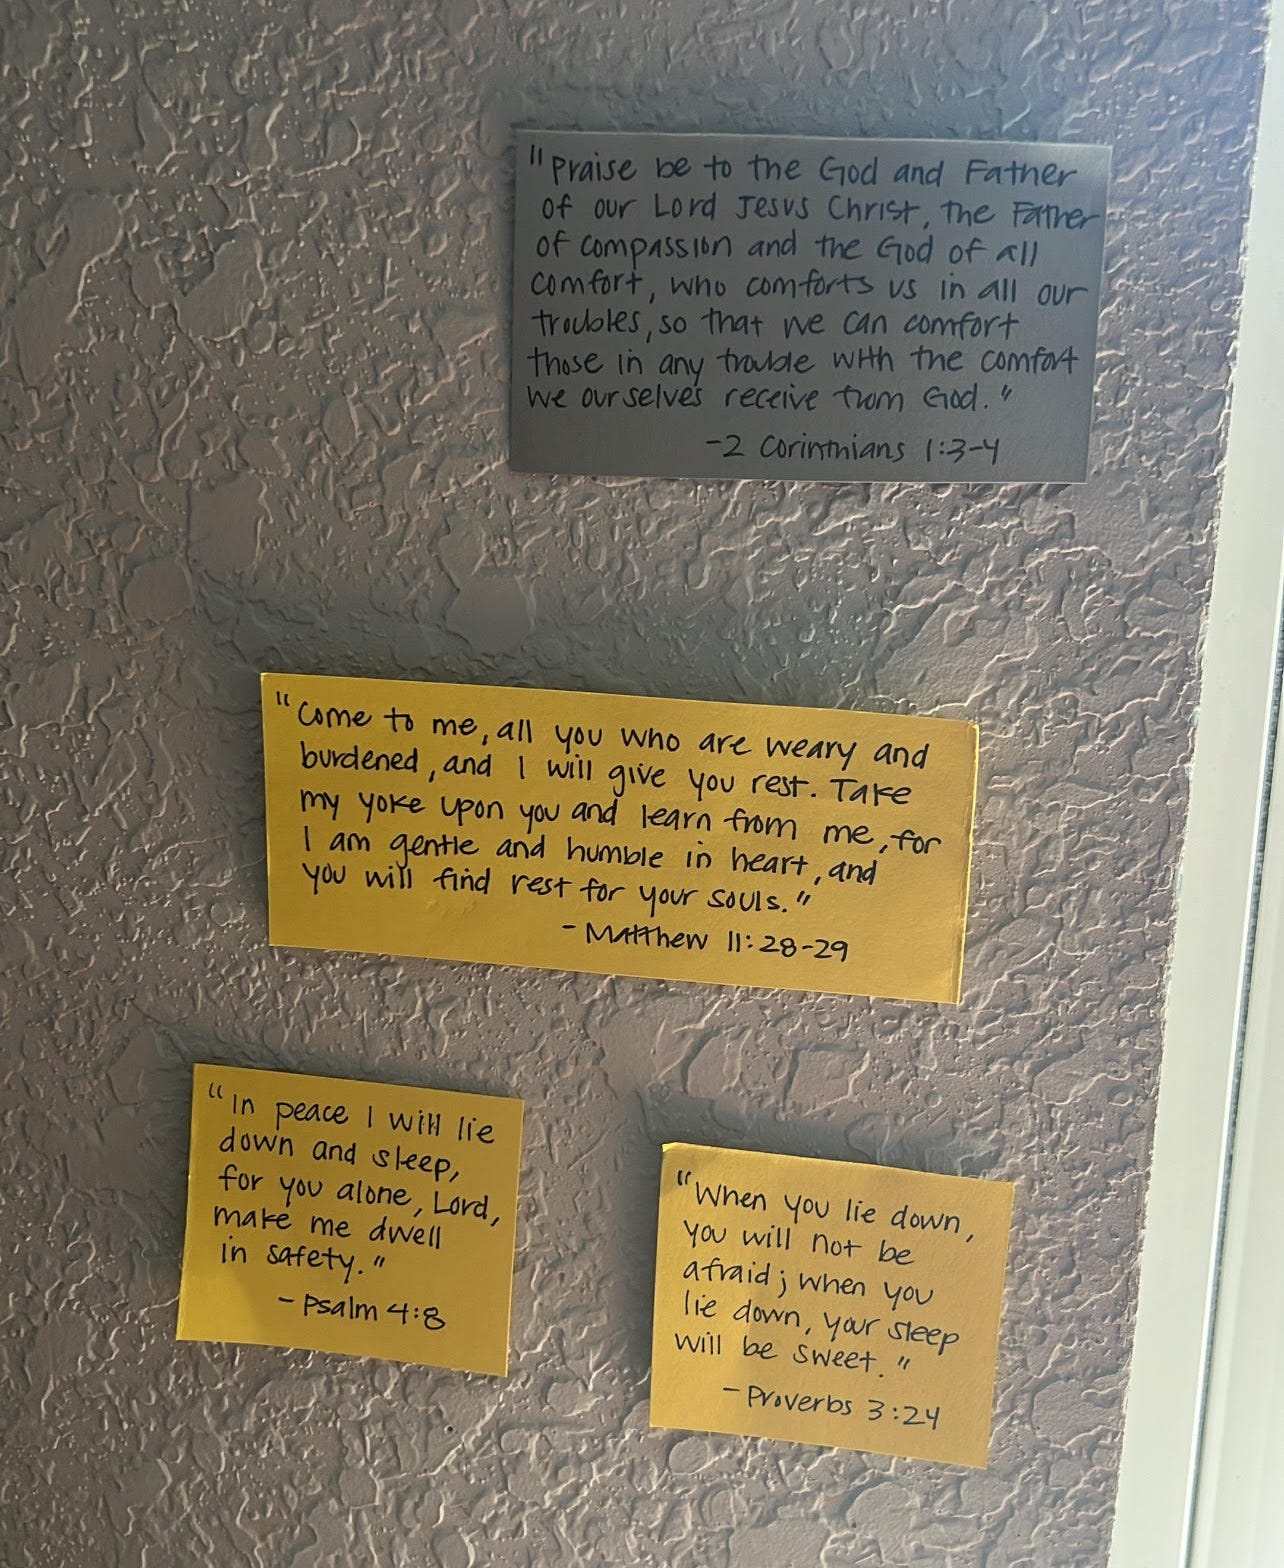 "Praise be to the God and Father
of our Lord Jesus Christ, the Father
of compassion and the God of all
comfort, who comforts us in all our
troubles, so that we can comfort
those in any trouble with the comfort
we ourselves receive from God."
-2 Corinthians 1:3-4
"Come to me, all you who are weary and
burdened, and I will give you rest. Take
my yoke upon you and learn from me, for
I am gentle and humble in heart, and
you will find rest for your souls."
- Matthew 11:28-29
"In peace I will lie
down and sleep,
for you alone, Lord,
make me dwell
in safety."
- Psalm 4:8
"When you lie down,
you will not be
afraid; when you
lie down, your sleep
will be sweet."
- Proverbs 3:24